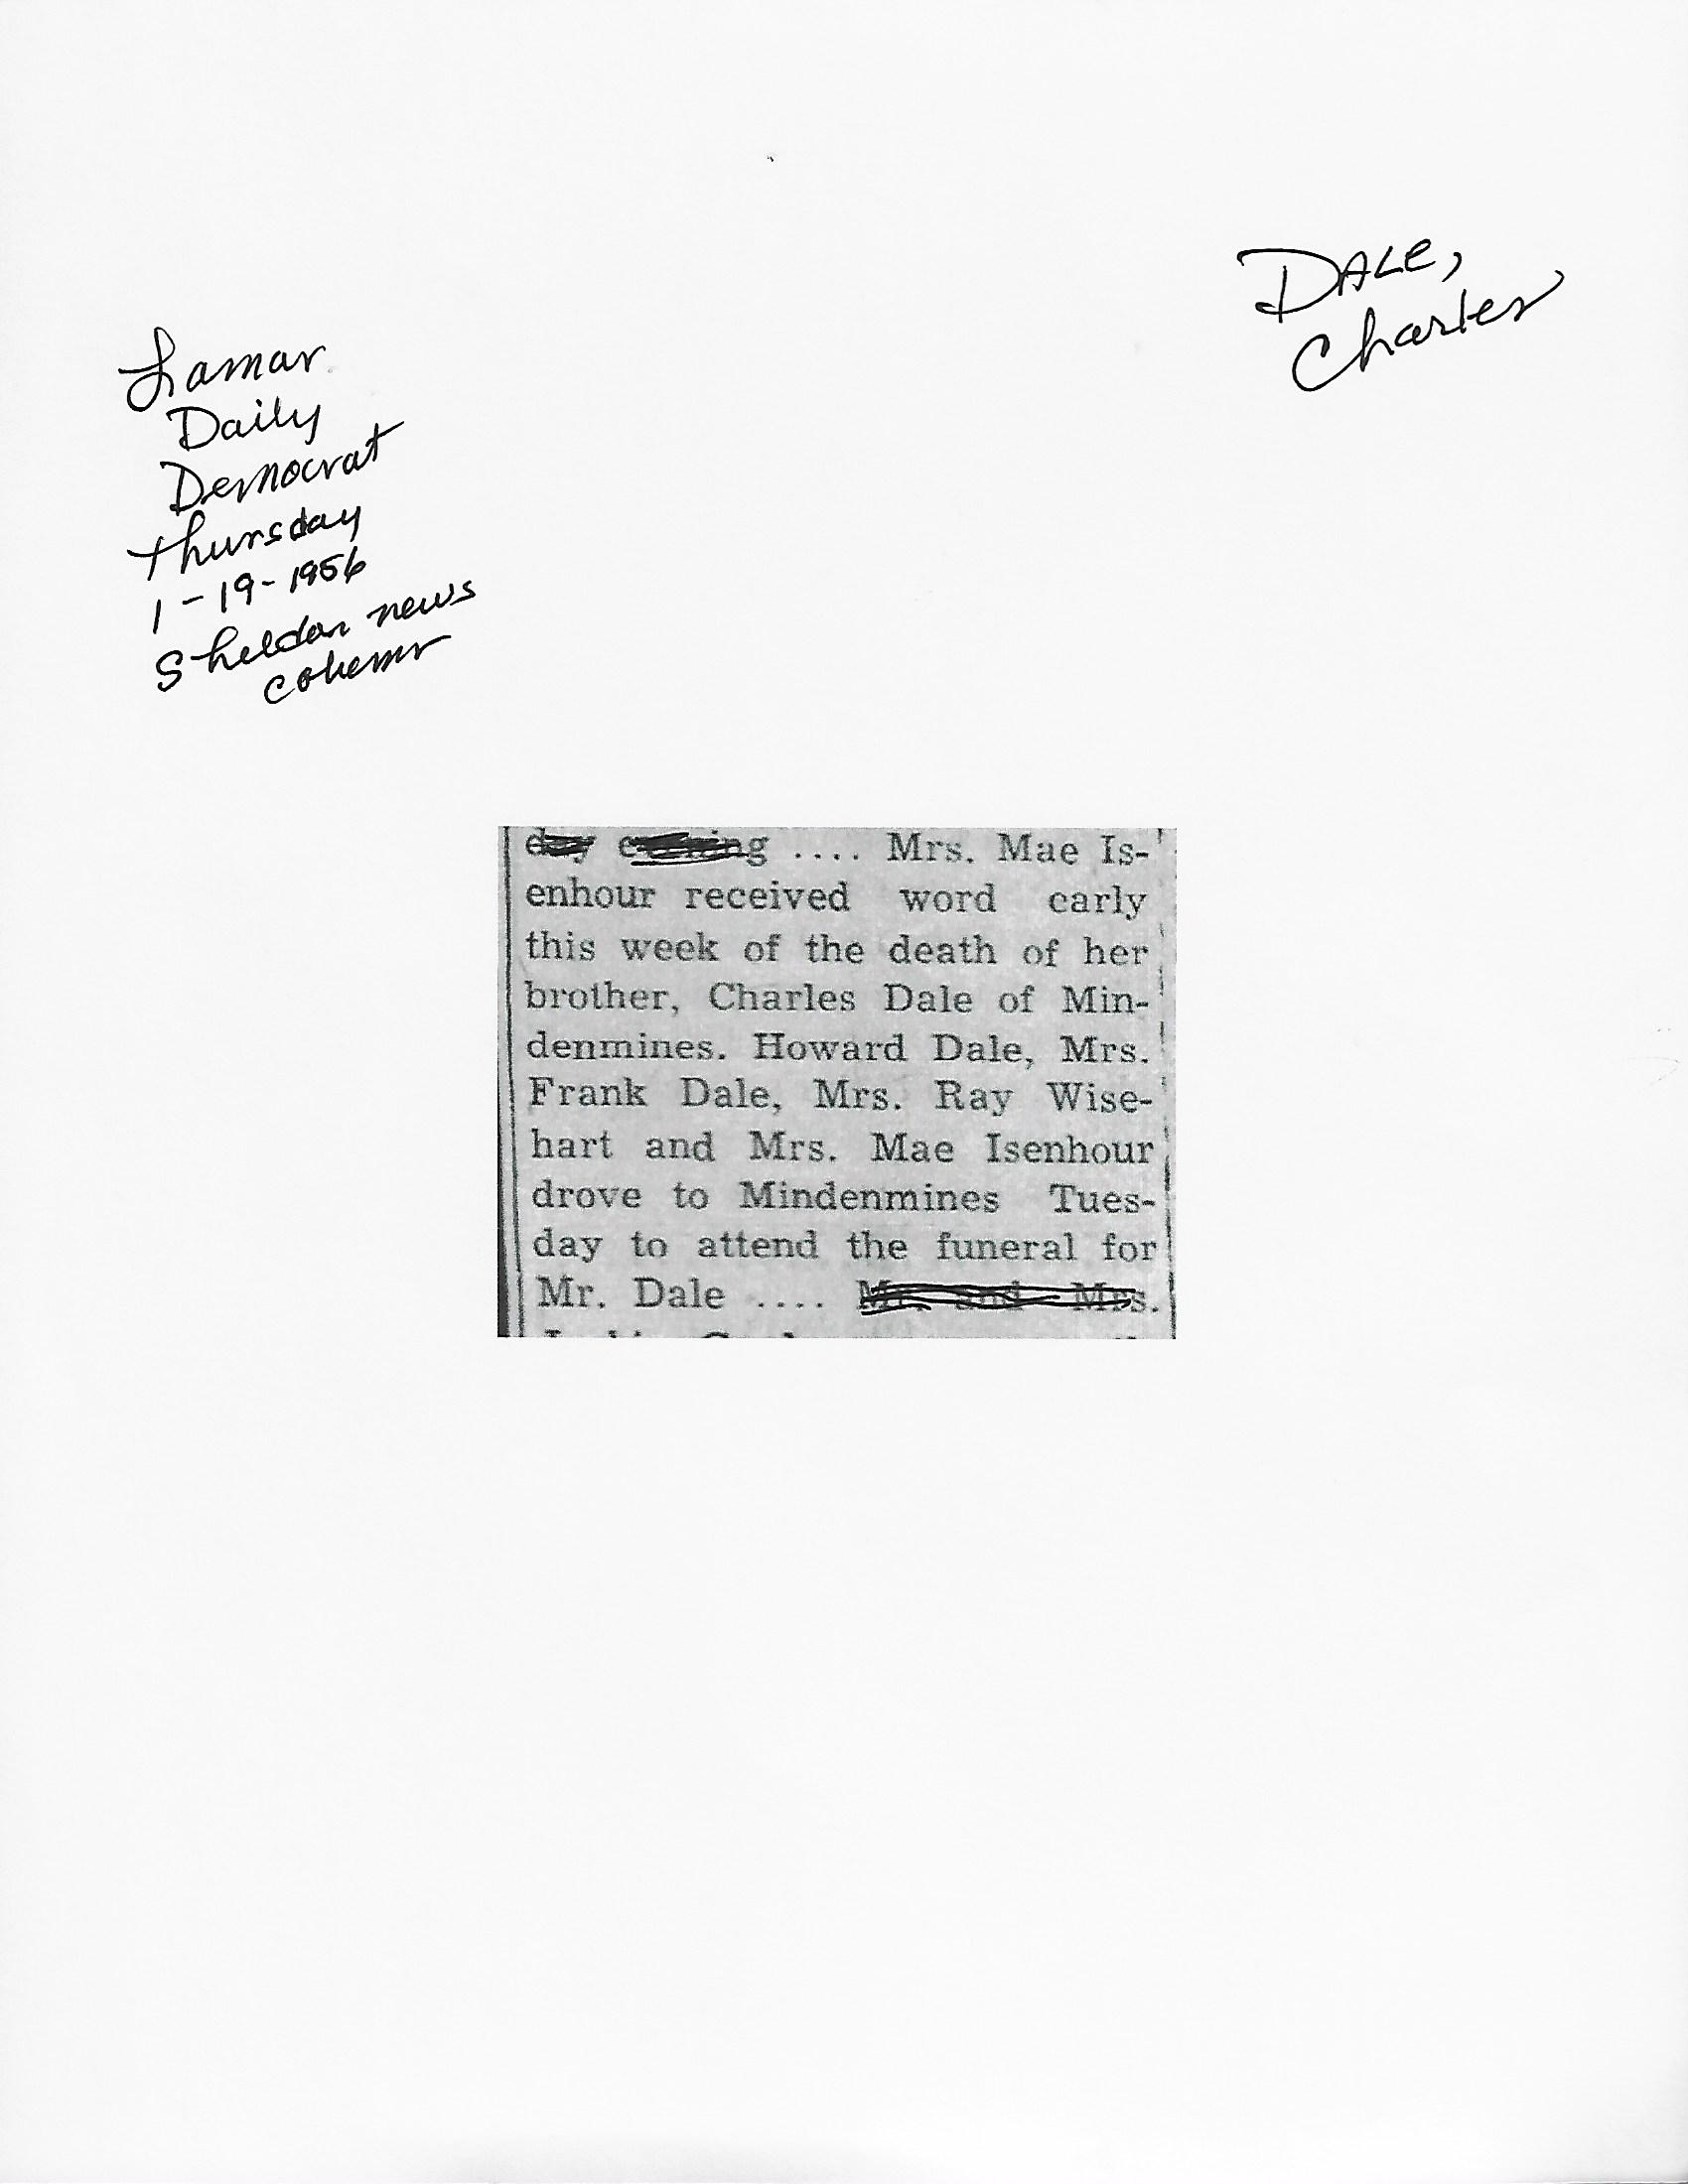 DALE,
Charles
Lamar
Daily
Democrat
Thursday
1-19-1956
Sheldon news
column
day evening .... Mrs. Mae Is-
enhour received word early
this week of the death of her
brother, Charles Dale of Min-
denmines. Howard Dale, Mrs.
Frank Dale, Mrs. Ray Wise-
hart and Mrs. Mae Isenhour
drove to Mindenmines Tues-
day to attend the funeral for
Mr. Dale .... Mr. and Mrs.